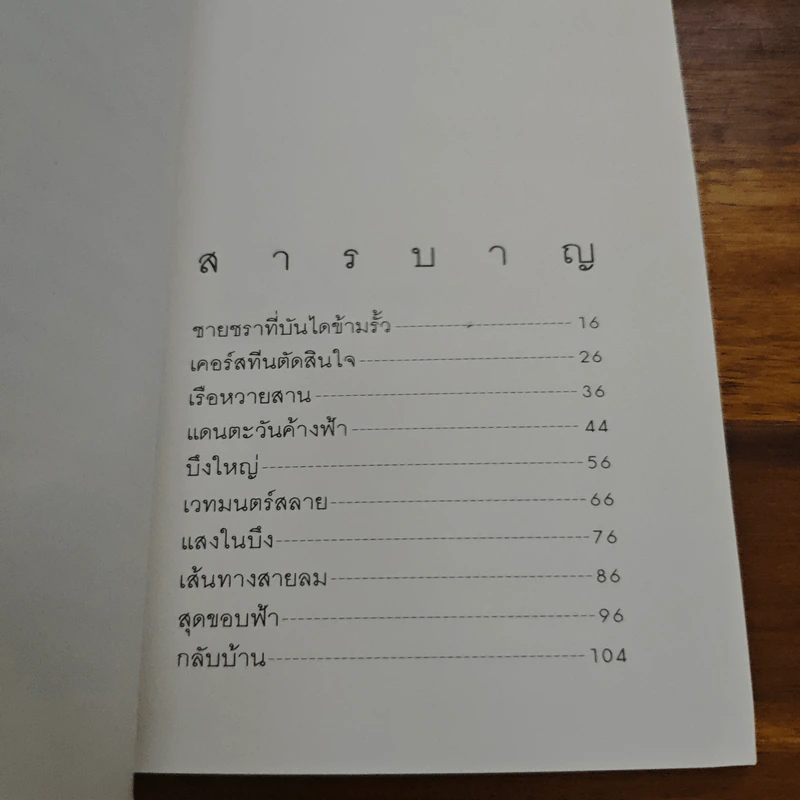 ส า ร บ า ญ
ชายชราที่บันไดข้ามรั้ว 16
เคอร์สทีนตัดสินใจ 26
เรือหวายสาน 36
แดนตะวันค้างฟ้า 44
บึงใหญ่ 56
เวทมนตร์สลาย 66
แสงในบึง 76
เส้นทางสายลม 86
สุดขอบฟ้า 96
กลับบ้าน 104